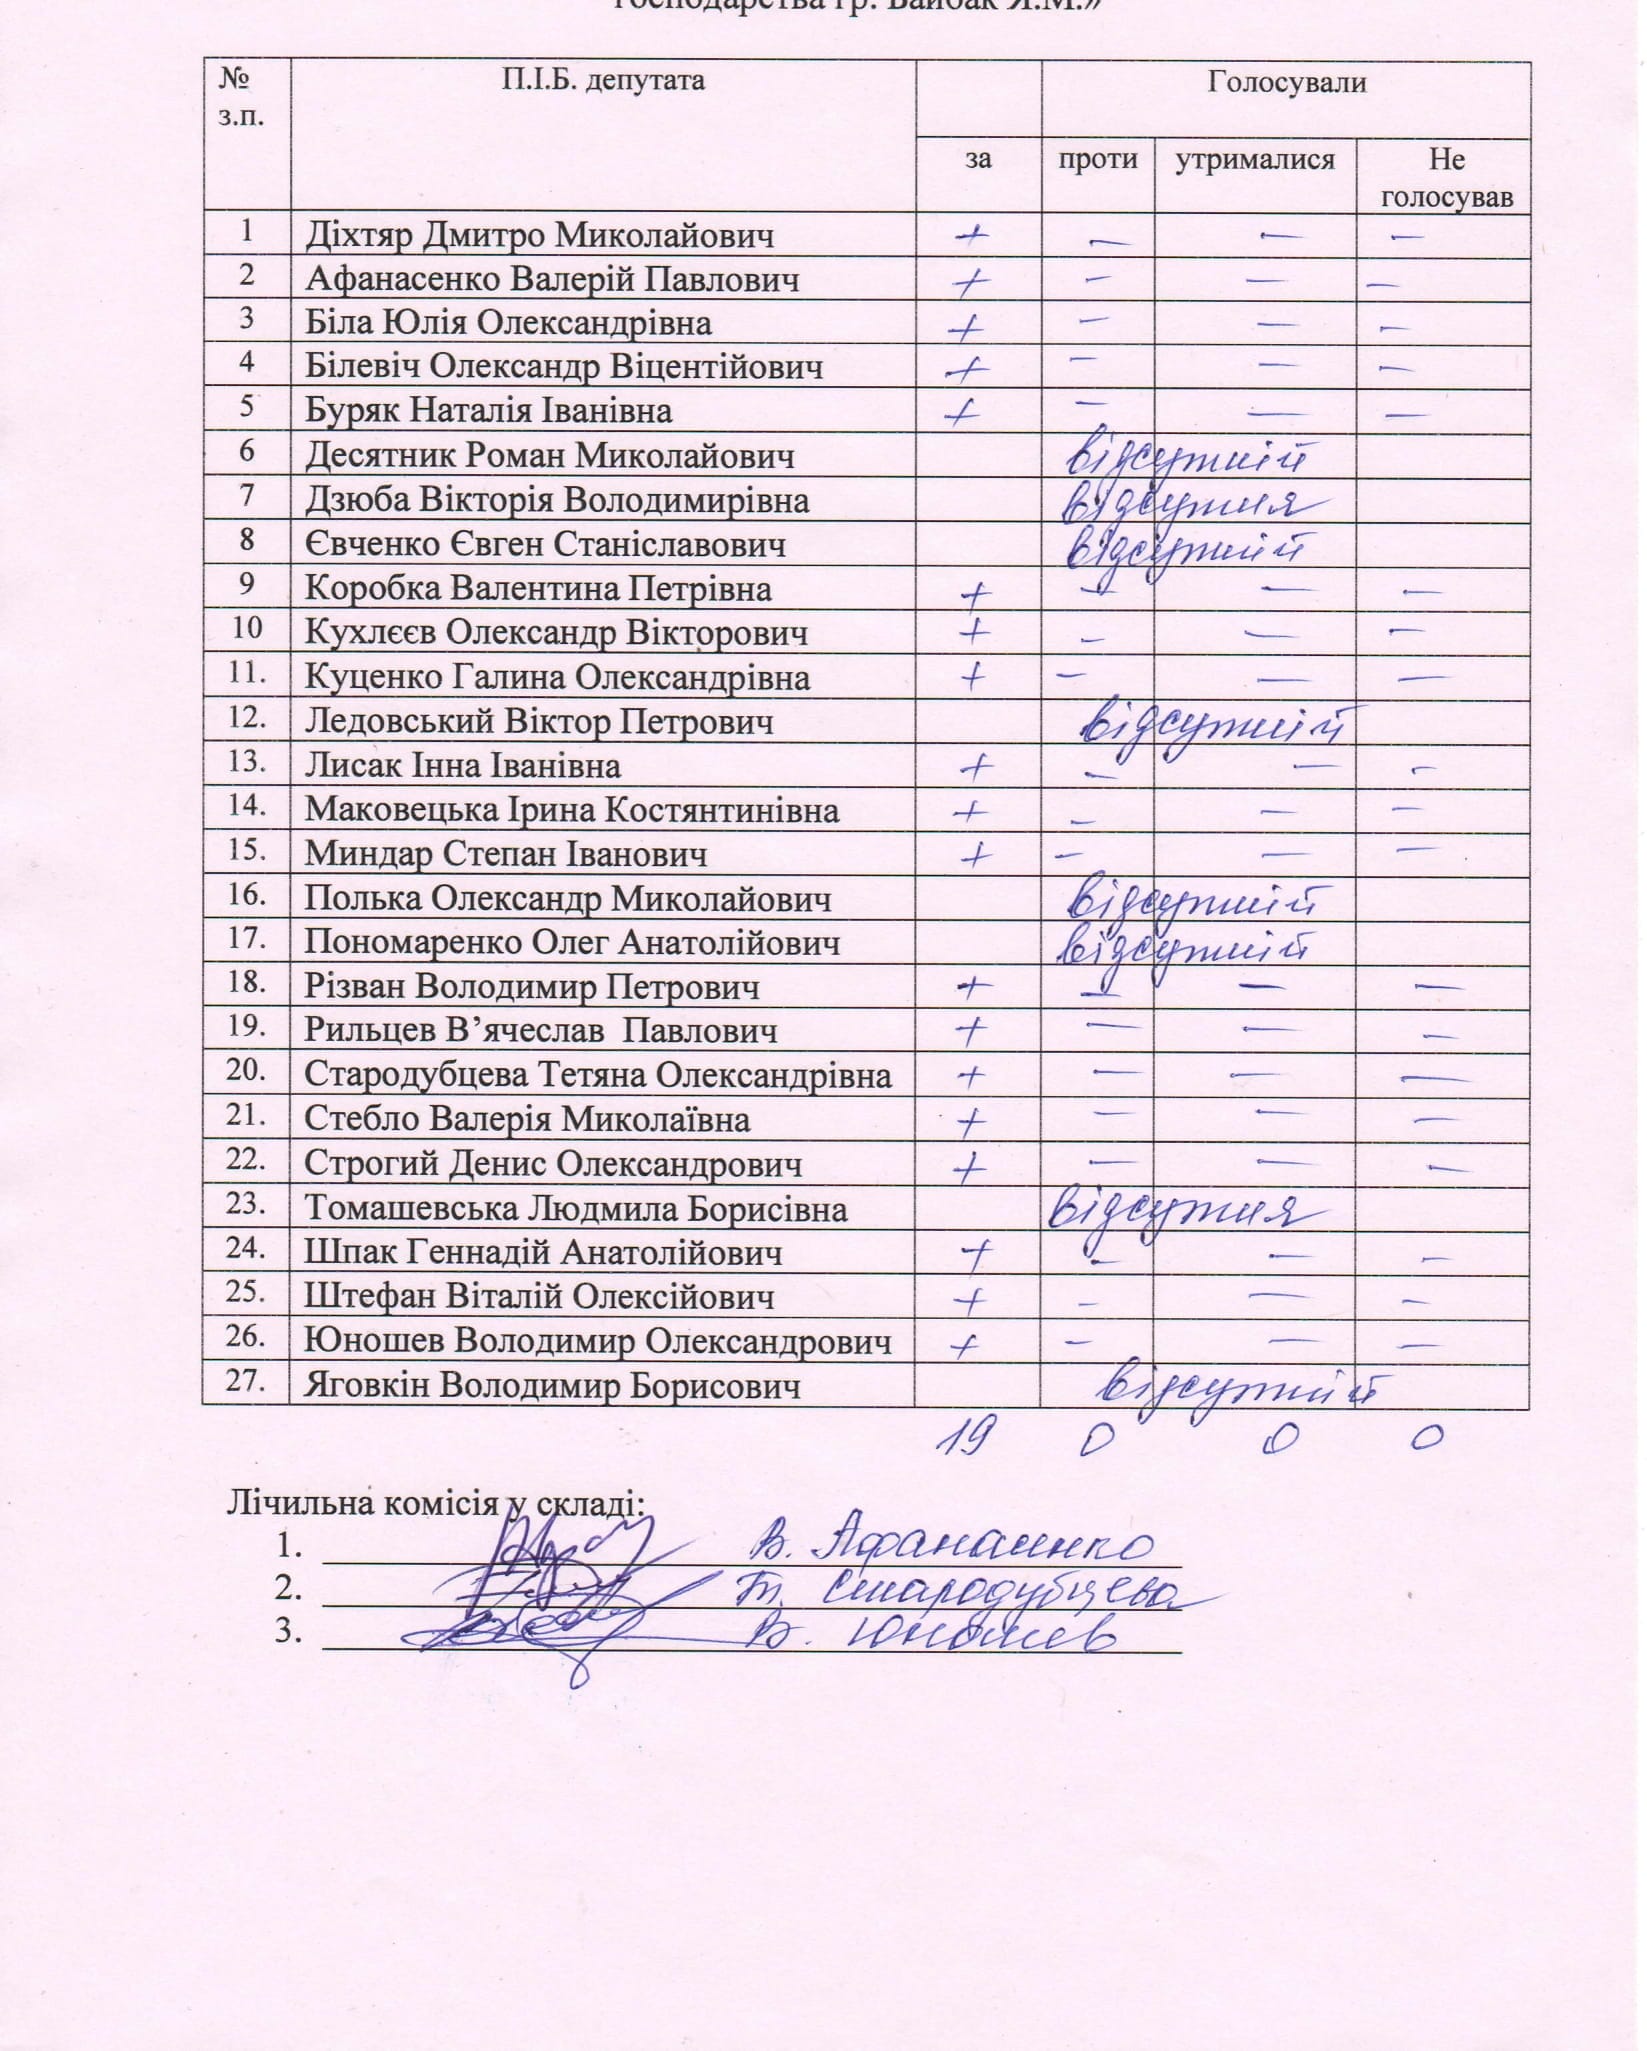 господарства гр. Байбак Я.М.»
№ з.п. П.І.Б. депутата Голосували
за проти утрималися Не голосував
1 Діхтяр Дмитро Миколайович + – – –
2 Афанасенко Валерій Павлович + – – –
3 Біла Юлія Олександрівна + – – –
4 Білевіч Олександр Віцентійович + – – –
5 Буряк Наталія Іванівна + – – –
6 Десятник Роман Миколайович відсутній
7 Дзюба Вікторія Володимирівна відсутня
8 Євченко Євген Станіславович відсутній
9 Коробка Валентина Петрівна + – – –
10 Кухлєєв Олександр Вікторович + – – –
11. Куценко Галина Олександрівна + – – –
12. Ледовський Віктор Петрович відсутній
13. Лисак Інна Іванівна + – – –
14. Маковецька Ірина Костянтинівна + – – –
15. Миндар Степан Іванович + – – –
16. Полька Олександр Миколайович відсутній
17. Пономаренко Олег Анатолійович відсутній
18. Різван Володимир Петрович + – – –
19. Рильцев В’ячеслав Павлович + – – –
20. Стародубцева Тетяна Олександрівна + – – –
21. Стебло Валерія Миколаївна + – – –
22. Строгий Денис Олександрович + – – –
23. Томашевська Людмила Борисівна відсутня
24. Шпак Геннадій Анатолійович + – – –
25. Штефан Віталій Олексійович + – – –
26. Юношев Володимир Олександрович + – – –
27. Яговкін Володимир Борисович відсутній
19 0 0 0
Лічильна комісія у складі:
1. В. Афанасенко
2. Т. Стародубцева
3. В. Юношев